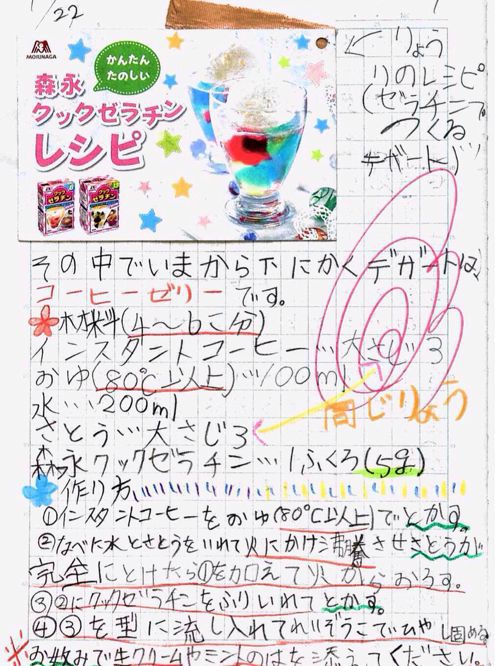 1/22
MORINAGA
かんたん
たのしい
森永
クックゼラチン
レシピ
りょう
りのレシピ
(ゼラチンで
つくる
デザート)
その中でいまから下にかくデザートは、
コーヒーゼリーです。
材料(4〜6こ分)
インスタントコーヒー…大さじ3
おゆ(80℃以上)…100ml
水…200ml
同じりょう
さとう…大さじ3
森永クックゼラチン…1ふくろ(5g)
作り方
①インスタントコーヒーをおゆ(80℃以上)でとかす。
②なべに水とさとうをいれて火にかけ沸騰させさとうが
完全にとけたら①を加えて火からおろす。
③②にクックゼラチンをふりいれてとかす。
④③を型に流し入れてれいぞうこでひやし固める
※お好みで生クリームやミントのはを添えてください。